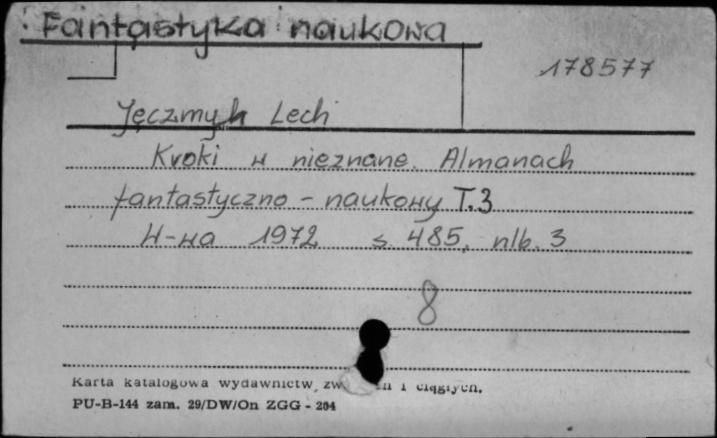 Fantastyka naukowa
178577
Jęczmyk Lech
Kroki w nieznane. Almanach
fantastyczno - naukowy T.3
W-wa 1972 s. 485, nlb. 3
8
Karta katalogowa wydawnictw i ciągłych.
PU-B-144 zam. 29/DW/On ZGG - 204